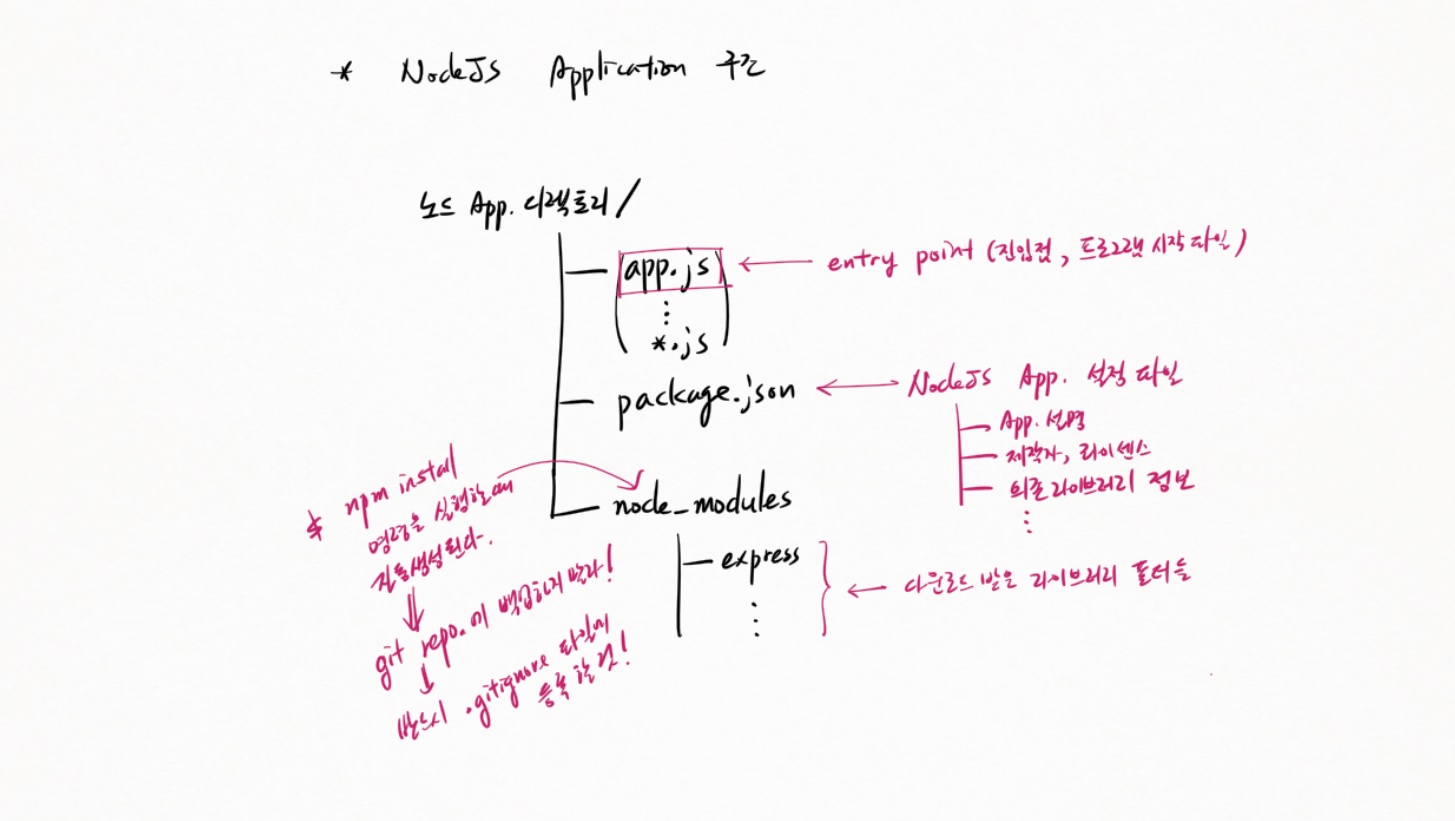 * NodeJS Application 구조
노드 App. 디렉토리/
app.js
⋮
*.js
← entry point (진입점, 프로그램 시작 파일)
package.json
↔ NodeJS App. 설정 파일
App. 설명
제작자, 라이센스
의존 라이브러리 정보
⋮
node_modules
express
⋮
← 다운로드 받은 라이브러리 폴더들
* npm install
명령을 실행할 때
자동생성된다.
⇓
git repo.에 백업하지 말라!
↓
반드시 .gitignore 파일에
등록할 것!